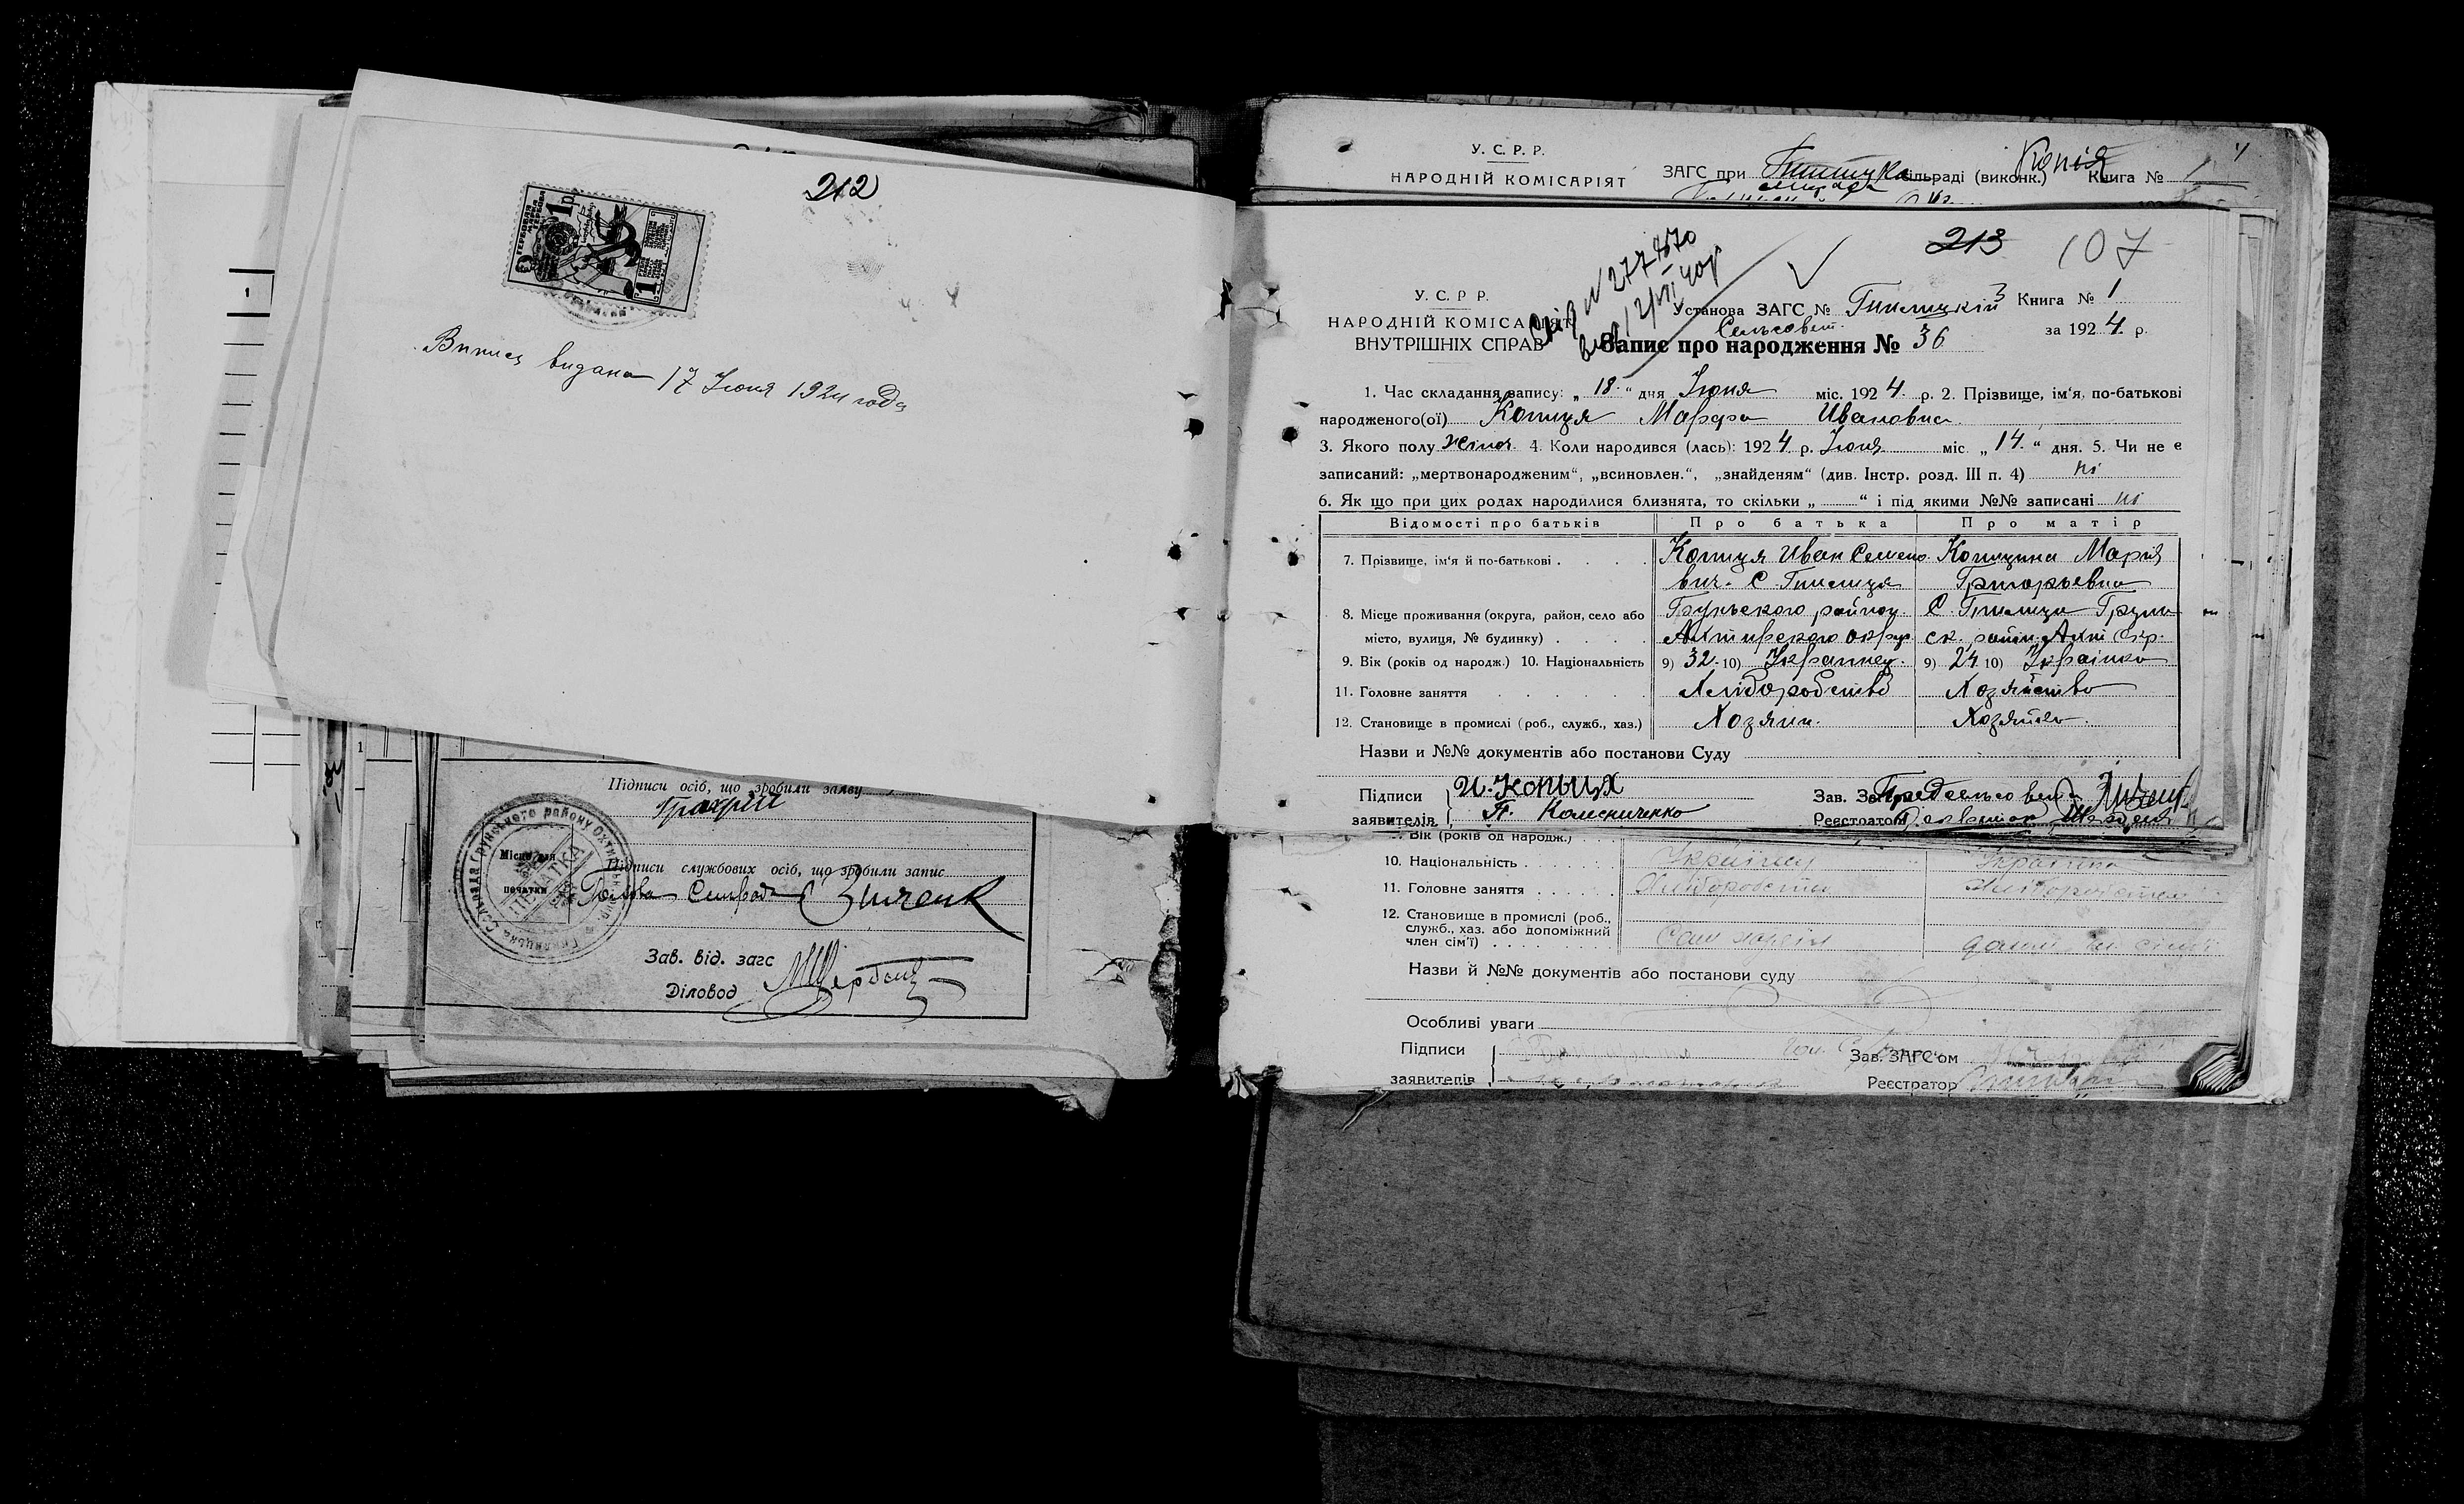 212
Выпись видана 17 Июня 1924 года
Підписи осіб, що зробили заяву
Місце для
печатки
Підписи службових осіб, що зробили запис
Голова Сельради Зінченк
Зав. від. загс
Діловод
У. С. Р. Р.
НАРОДНІЙ КОМІСАРІЯТ
ЗАГС при сільраді (виконк.) Копія Книга № 1
213 107
У. С. Р Р.
НАРОДНІЙ КОМІСАРІЯТ
ВНУТРІШНІХ СПРАВ
Установа ЗАГС № Гнилицкій Книга № 1
Сельсовет за 1924 р.
Запис про народження № 36
1. Час складання запису: „ 18 “ дня Июня міс. 1924 р. 2. Прізвище, ім'я, по-батькові
народженого(ої) Копиця Марфа Ивановна
3. Якого полу жіноч. 4. Коли народився (лась): 1924 р. Июня міс. „ 14. “ дня. 5. Чи не є
записаний: „мертвонародженим“, „всиновлен.“, „знайденям“ (див. Інстр. розд. III п. 4) ні
6. Як що при цих родах народилися близнята, то скільки „ “ і під якими №№ записані ні
Відомості про батьків Про батька Про матір
7. Прізвище, ім'я й по-батькові Копиця Иван Семено- Копицина Мария
вич. С. Гнилиця Григорьевна
8. Місце проживання (округа, район, село або Груньского району С. Гнилиця Грунь
місто, вулиця, № будинку) Ахтирского округ. ск. район. Ахт. Окр.
9. Вік (років од народж.) 10. Національність 9) 32 10) Украинец. 9) 24 10) Українка
11. Головне заняття Хлiборобство Хозяйство
12. Становище в промислі (роб., служб., хаз.) Хозяин. Хозяйка.
Назви и №№ документів або постанови Суду
Підписи И. Копыця Зав. Загсом Предсельсовета
заявителів П. Колесниченко Реєстратор
Вік (років од народж.)
10. Національність Українец Українка
11. Головне заняття Хліборобство Хліборобство
12. Становище в промислі (роб.,
служб., хаз. або допоміжний
член сім'ї) Сам хазяїн
Назви й №№ документів або постанови суду
Особливі уваги
Підписи Зав. ЗАГС'ом
заявителів Реєстратор